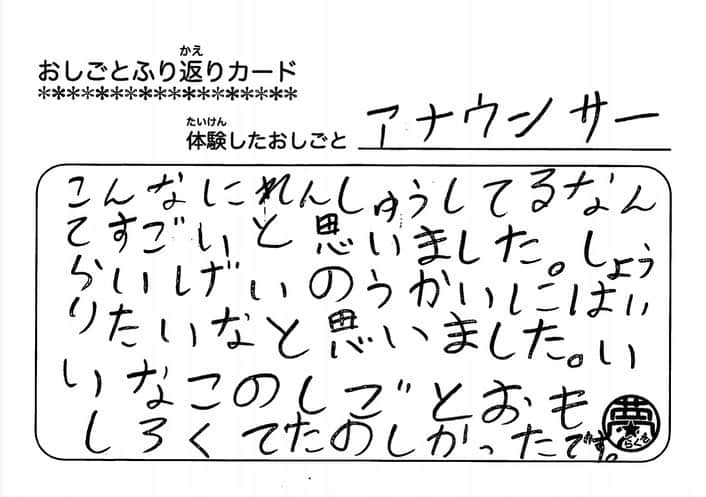 かえ
おしごとふり返りカード
******************
たいけん
体験したおしごと アナウンサー
こんなにれんしゅうしてるなん
てすごいと思いました。しょう
らいげいのうかいにはい
りたいなと思いました。い
いなこのしごとおも
しろくてたのしかったです。
夢
らくざ